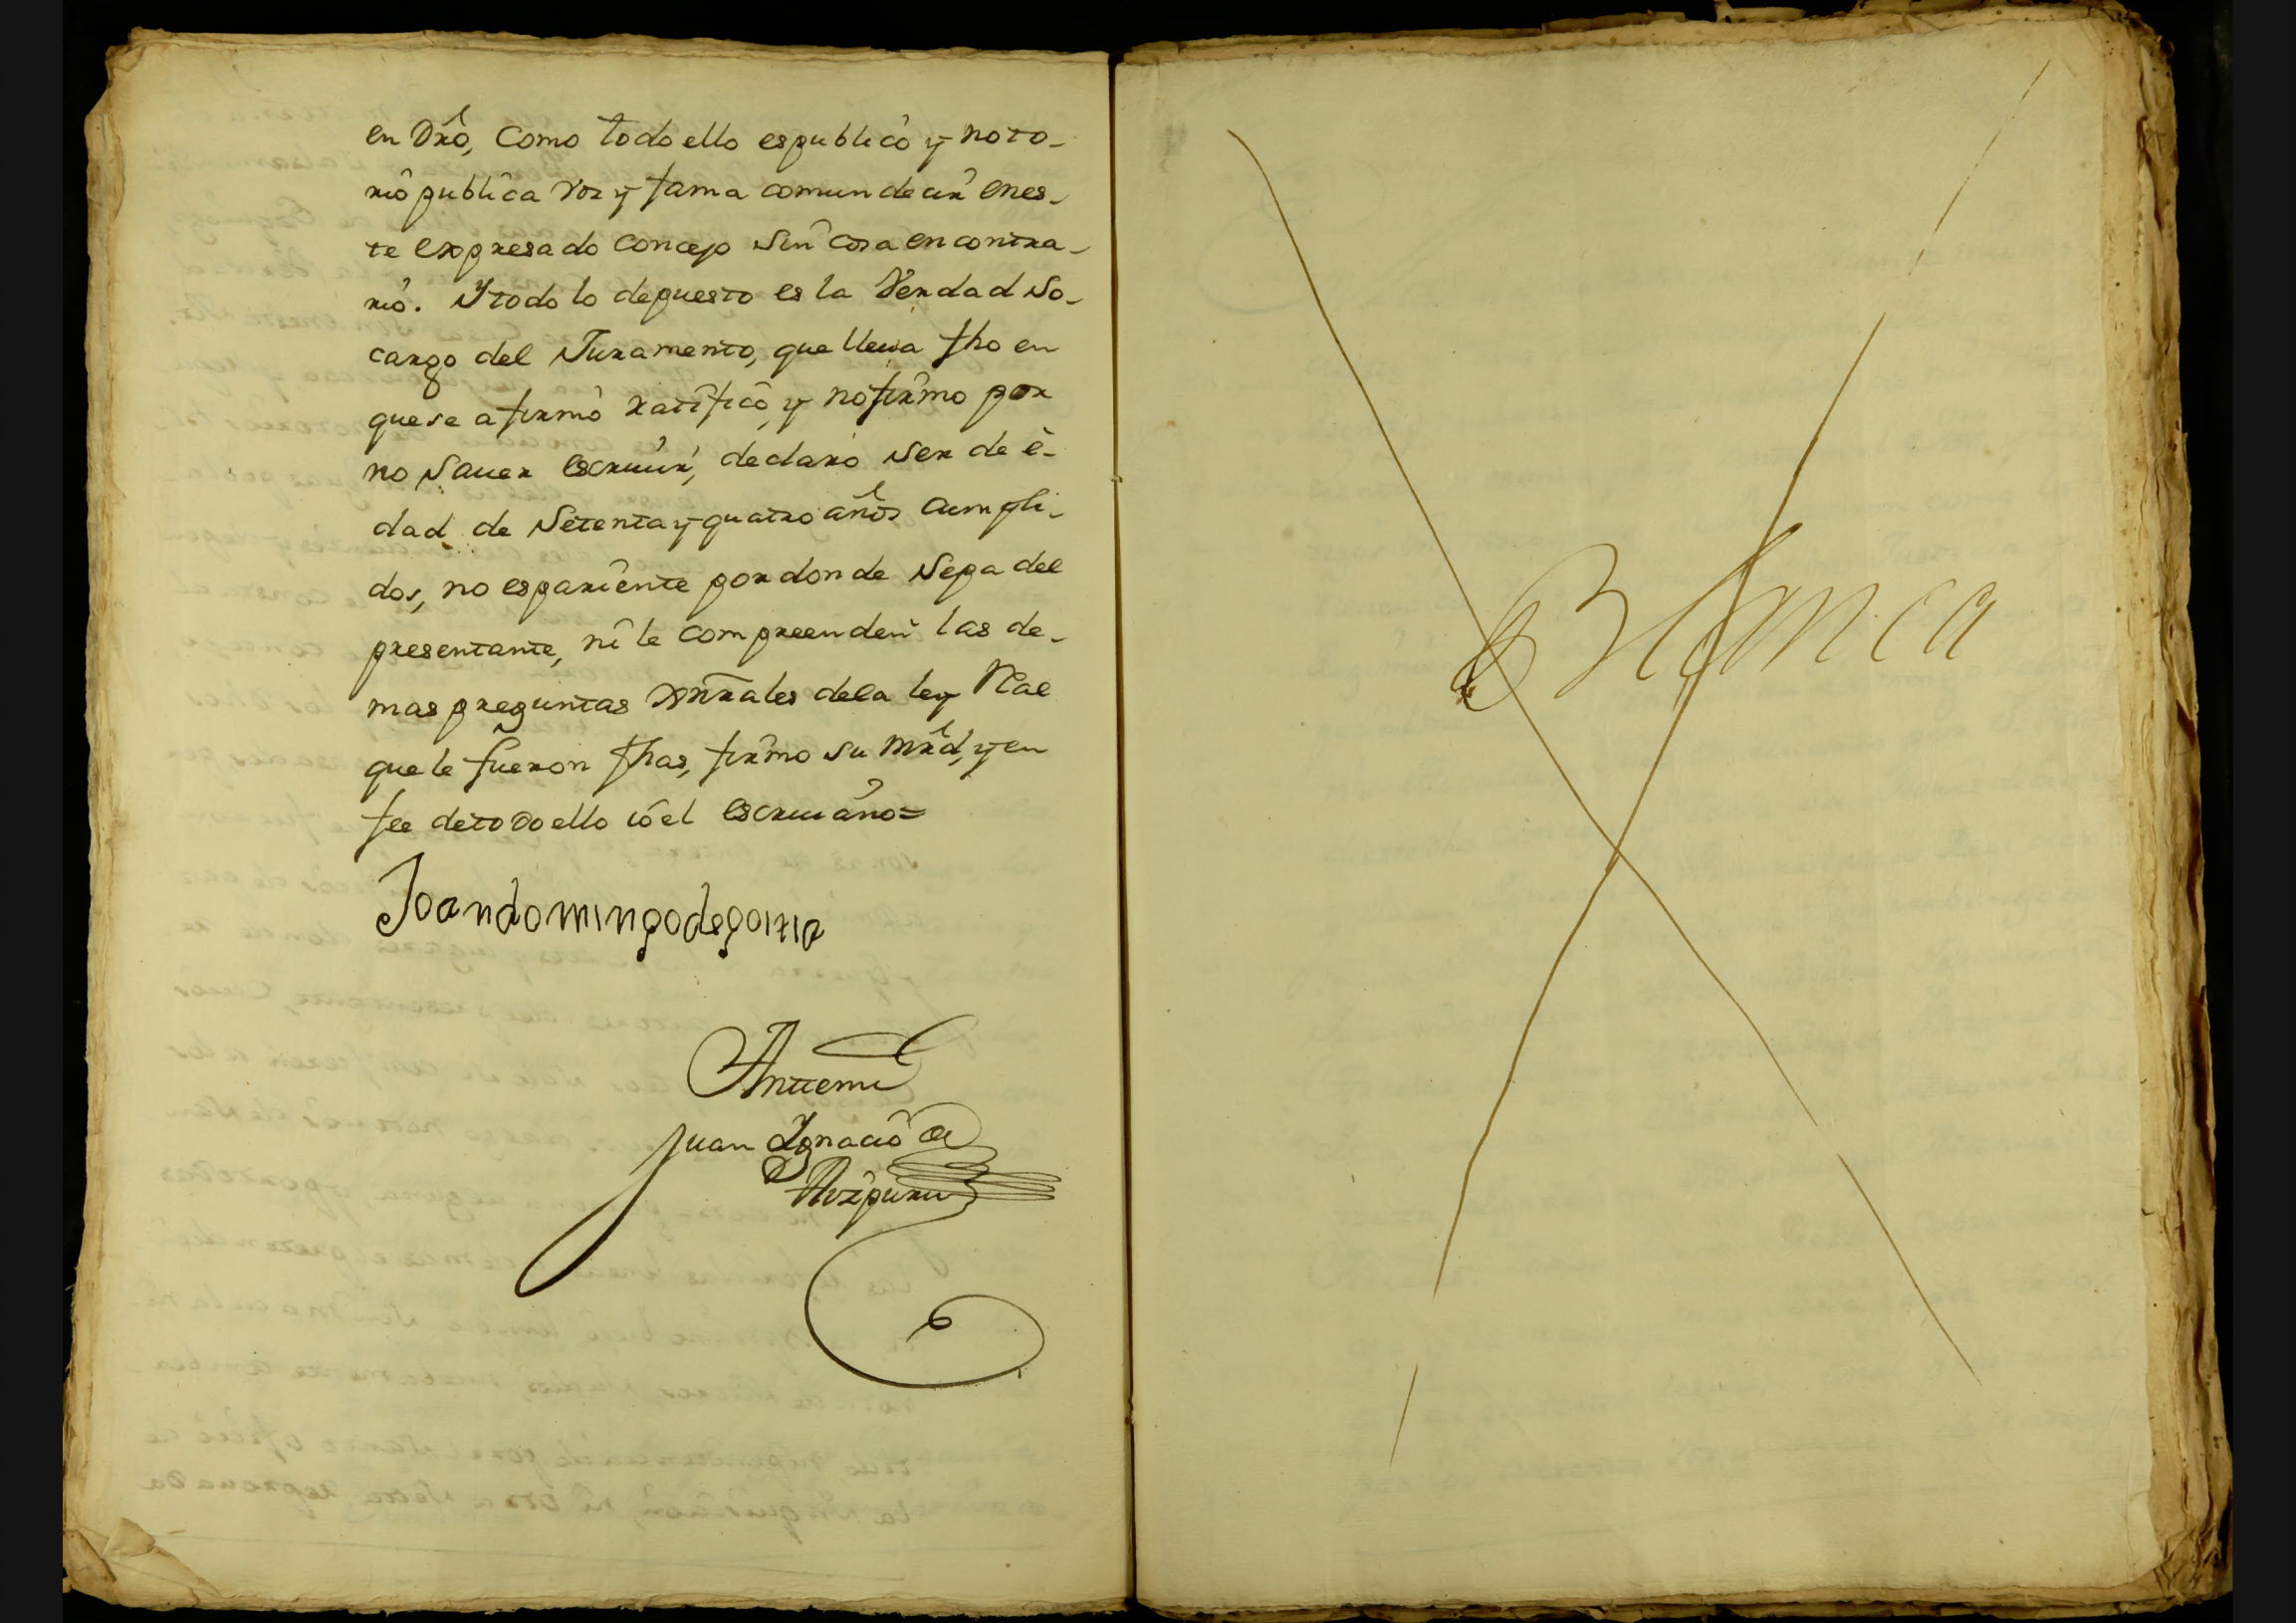 en Dro, como todo ello es publico y noto-
rio publica voz y fama comun decir en es-
te expresado concejo sin cosa en contra-
rio. Y todo lo depuesto es la Verdad so-
cargo del Juramento, que lleua fho en
que se afirmo ratifico, y no firmo por
no sauer escriuir, declaro ser de e-
dad de Setenta y quatro años cumpli-
dos, no es pariente por donde sepa del
presentante, ni le compreenden las de-
mas preguntas xnrales dela ley Rae
que le fueron fhas, firmo su mrd, y en
fee de todo ello io el escriuano=
Joan domingo de goitia
Antte mi
Juan Ygnacio de
Aizpuru
Blanca